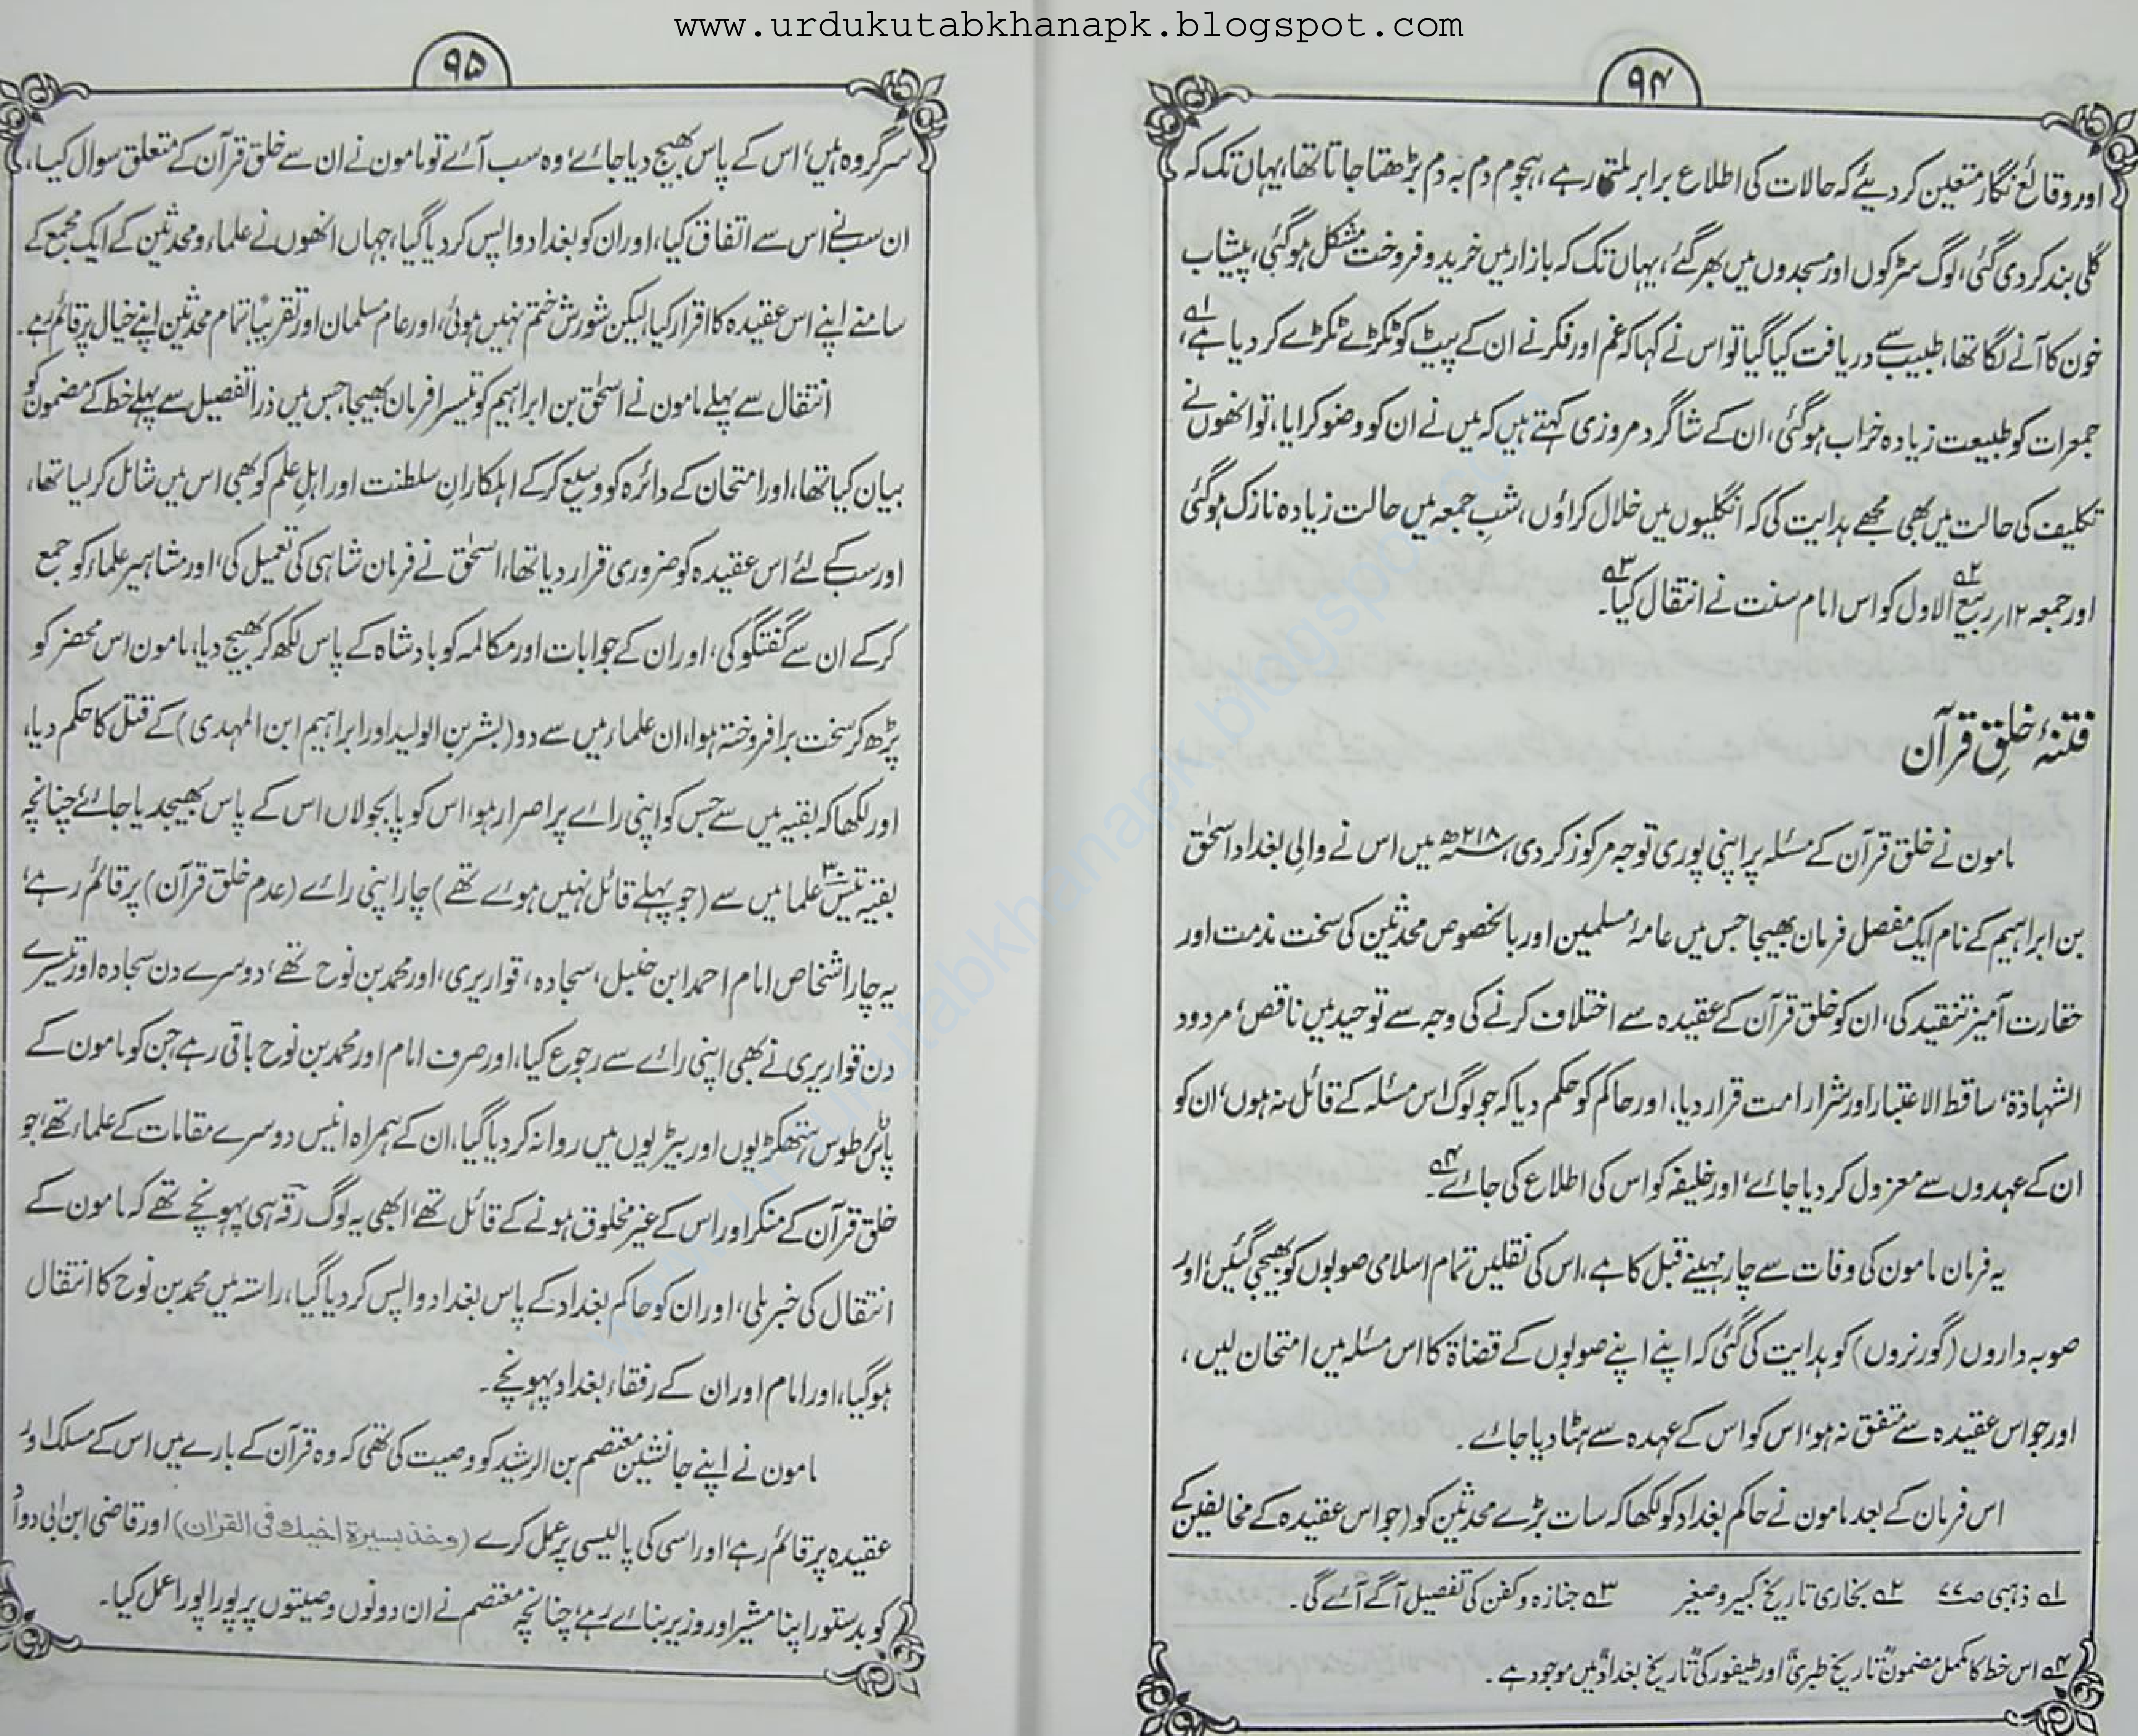 www.urdukutabkhanapk.blogspot.com
۹۴
اور وقائع نگار متعین کر دیئے کہ حالات کی اطلاع برابر ملتی رہے، ہجوم دم بہ دم بڑھتا جاتا تھا، یہاں تک کہ
گلی بند کر دی گئی، لوگ سڑکوں اور مسجدوں میں بھر گئے، یہاں تک کہ بازار میں خرید و فروخت مشکل ہو گئی، پیشاب
خون کا آنے لگا تھا، طبیب سے دریافت کیا گیا تو اس نے کہا کہ غم اور فکر نے ان کے پیٹ کو ٹکڑے ٹکڑے کر دیا ہے ۱ے،
جمعرات کو طبیعت زیادہ خراب ہو گئی، ان کے شاگرد مروزی کہتے ہیں کہ میں نے ان کو وضو کرایا، تو انھوں نے
تکلیف کی حالت میں بھی مجھے ہدایت کی کہ انگلیوں میں خلال کراؤں، شبِ جمعہ میں حالت زیادہ نازک ہو گئی
اور جمعہ ۱۲؍ ربیع الاول ۲ے کو اس امام سنت نے انتقال کیا ۳ے۔
فتنۂ خلقِ قرآن
مامون نے خلق قرآن کے مسئلہ پر اپنی پوری توجہ مرکوز کر دی، ۲۱۸ھ میں اس نے والیِ بغداد اسحٰق
بن ابراہیم کے نام ایک مفصل فرمان بھیجا جس میں عامۂ مسلمین اور بالخصوص محدثین کی سخت مذمت اور
حقارت آمیز تنقید کی، ان کو خلق قرآن کے عقیدہ سے اختلاف کرنے کی وجہ سے توحید میں ناقص، مردود
الشہادۃ، ساقط الاعتبار اور شرار امت قرار دیا، اور حاکم کو حکم دیا کہ جو لوگ اس مسئلہ کے قائل نہ ہوں، ان کو
ان کے عہدوں سے معزول کر دیا جائے، اور خلیفہ کو اس کی اطلاع کی جائے ۴ے۔
یہ فرمان مامون کی وفات سے چار مہینے قبل کا ہے، اس کی نقلیں تمام اسلامی صوبوں کو بھیجی گئیں، اور
صوبہ داروں (گورنروں) کو ہدایت کی گئی کہ اپنے اپنے صوبوں کے قضاۃ کا اس مسئلہ میں امتحان لیں،
اور جو اس عقیدہ سے متفق نہ ہو، اس کو اس کے عہدہ سے ہٹا دیا جائے۔
اس فرمان کے بعد مامون نے حاکم بغداد کو لکھا کہ سات بڑے محدثین کو (جو اس عقیدہ کے مخالفین کے
۱ے ذہبی ص۷۷ ۲ے بخاری تاریخ کبیر و صغیر ۳ے جنازہ و کفن کی تفصیل آگے آئے گی۔
۴ے اس خط کا مکمل مضمون "تاریخ طبری" اور طیفور کی "تاریخ بغداد" میں موجود ہے۔
۹۵
سرگروہ ہیں، اس کے پاس بھیج دیا جائے، وہ سب آئے تو مامون نے ان سے خلق قرآن کے متعلق سوال کیا،
ان سب نے اس سے اتفاق کیا، اور ان کو بغداد واپس کر دیا گیا، جہاں انھوں نے علماء و محدثین کے ایک مجمع کے
سامنے اپنے اس عقیدہ کا اقرار کیا، لیکن شورش ختم نہیں ہوئی، اور عام مسلمان اور تقریباً تمام محدثین اپنے خیال پر قائم رہے۔
انتقال سے پہلے مامون نے اسحٰق بن ابراہیم کو تیسرا فرمان بھیجا، جس میں ذرا تفصیل سے پہلے خط کے مضمون کو
بیان کیا تھا، اور امتحان کے دائرہ کو وسیع کر کے اہلکارانِ سلطنت اور اہلِ علم کو بھی اس میں شامل کر لیا تھا،
اور سب کے لئے اس عقیدہ کو ضروری قرار دیا تھا، اسحٰق نے فرمان شاہی کی تعمیل کی، اور مشاہیر علماء کو جمع
کر کے ان سے گفتگو کی، اور ان کے جوابات اور مکالمہ کو بادشاہ کے پاس لکھ کر بھیج دیا، مامون اس محضر کو
پڑھ کر سخت برافروختہ ہوا، ان علماء میں سے دو (بشر بن الولید اور ابراہیم ابن المہدی) کے قتل کا حکم دیا،
اور لکھا کہ بقیہ میں سے جس کو اپنی رائے پر اصرار ہو، اس کو پابجولاں اس کے پاس بھیجدیا جائے، چنانچہ
بقیہ تیس ۳۰ علما میں سے (جو پہلے قائل نہیں ہوئے تھے) چار اپنی رائے (عدم خلق قرآن) پر قائم رہے،
یہ چار اشخاص امام احمد ابن حنبل، سجادہ، قواریری، اور محمد بن نوح تھے، دوسرے دن سجادہ اور تیسرے
دن قواریری نے بھی اپنی رائے سے رجوع کیا، اور صرف امام اور محمد بن نوح باقی رہے، جن کو مامون کے
پاس طوس ہتھکڑیوں اور بیڑیوں میں روانہ کر دیا گیا، ان کے ہمراہ انیس دوسرے مقامات کے علماء تھے، جو
خلق قرآن کے منکر اور اس کے غیر مخلوق ہونے کے قائل تھے، ابھی یہ لوگ رقہ ہی پہونچے تھے کہ مامون کے
انتقال کی خبر ملی، اور ان کو حاکم بغداد کے پاس بغداد واپس کر دیا گیا، راستہ میں محمد بن نوح کا انتقال
ہو گیا، اور امام اور ان کے رفقاء بغداد پہونچے۔
مامون نے اپنے جانشین معتصم بن الرشید کو وصیت کی تھی کہ وہ قرآن کے بارے میں اس کے مسلک اور
عقیدہ پر قائم رہے، اور اسی کی پالیسی پر عمل کرے (وخذ بسيرة اخيك في القرآن) اور قاضی ابن ابی دواؤ
کو بدستور اپنا مشیر اور وزیر بنائے رہے، چنانچہ معتصم نے ان دونوں وصیتوں پر پورا پورا عمل کیا۔
www.urdukutabkhanapk.blogspot.com